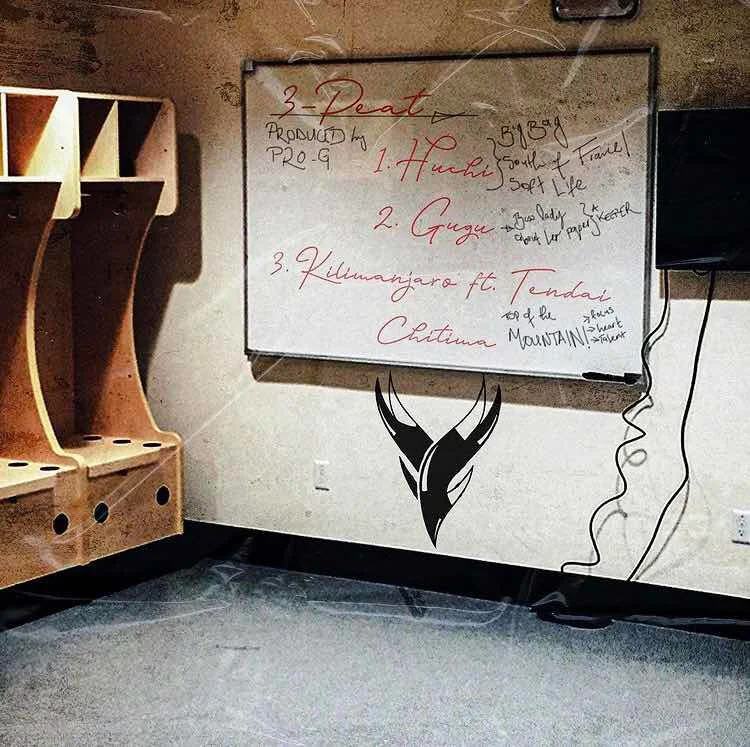 3-Peat
PRODUCED by
PRO-G
1. Huchi
Big Bag
South of France/
Soft Life
2. Gugu
Boss lady
about her paper
A
KEEPER
3. Kilimanjaro ft. Tendai
Chitima
TOP of the
MOUNTAIN!
→focus
→heart
→Talent